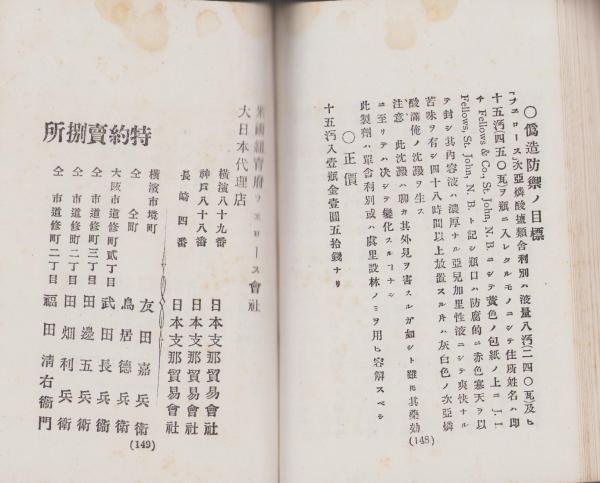 ○僞造防禦ノ目標
「フエロース」次亞燐酸鹽類舍利別ハ液量八汚(二四〇瓦)及ヒ
十五汚(四五〇瓦)ヲ瓶ニ入レタルモノニシテ住所姓名ハ即
チ Fellows & Co., St. John, N. B. ニシテ黄色ノ包紙ノ上ニ J. I.
Fellows, St. John, N. B. ト記シ瓶口ハ防腐的ニ赤色寒天ヲ以
テ封シ其内容液ハ濃厚ナル亞兒加里性液ニシテ爽快ナル
苦味ヲ有シ四十八時間以上放置スル片ハ灰白色ノ次亞燐
酸滿俺ノ沈澱ヲ生ス
注意 此沈澱ハ聊カ其外見ヲ害スルガ如シト雖モ其藥効
ニ至リテハ决シテ變化スルコナシ
此製劑ハ單舍利別或ハ虞里設林ノミヲ用ヒ容解スベシ
○正價
十五汚入壹瓶金壹圓五拾錢ナリ
(148)
米國紐育府フエロース會社
大日本代理店
橫濱八十九番 日本支那貿易會社
神戸八十八番 日本支那貿易會社
長崎四番 日本支那貿易會社
特約賣捌所
橫濱市境町 友田嘉兵衛
仝 仝町 鳥居德兵衛
大阪市道修町貳丁目 武田長兵衛
仝 市道修町三丁目 田邊五兵衛
仝 市道修町二丁目 田畑利兵衛
仝 市道修町二丁目 福田淸右衞門
(149)